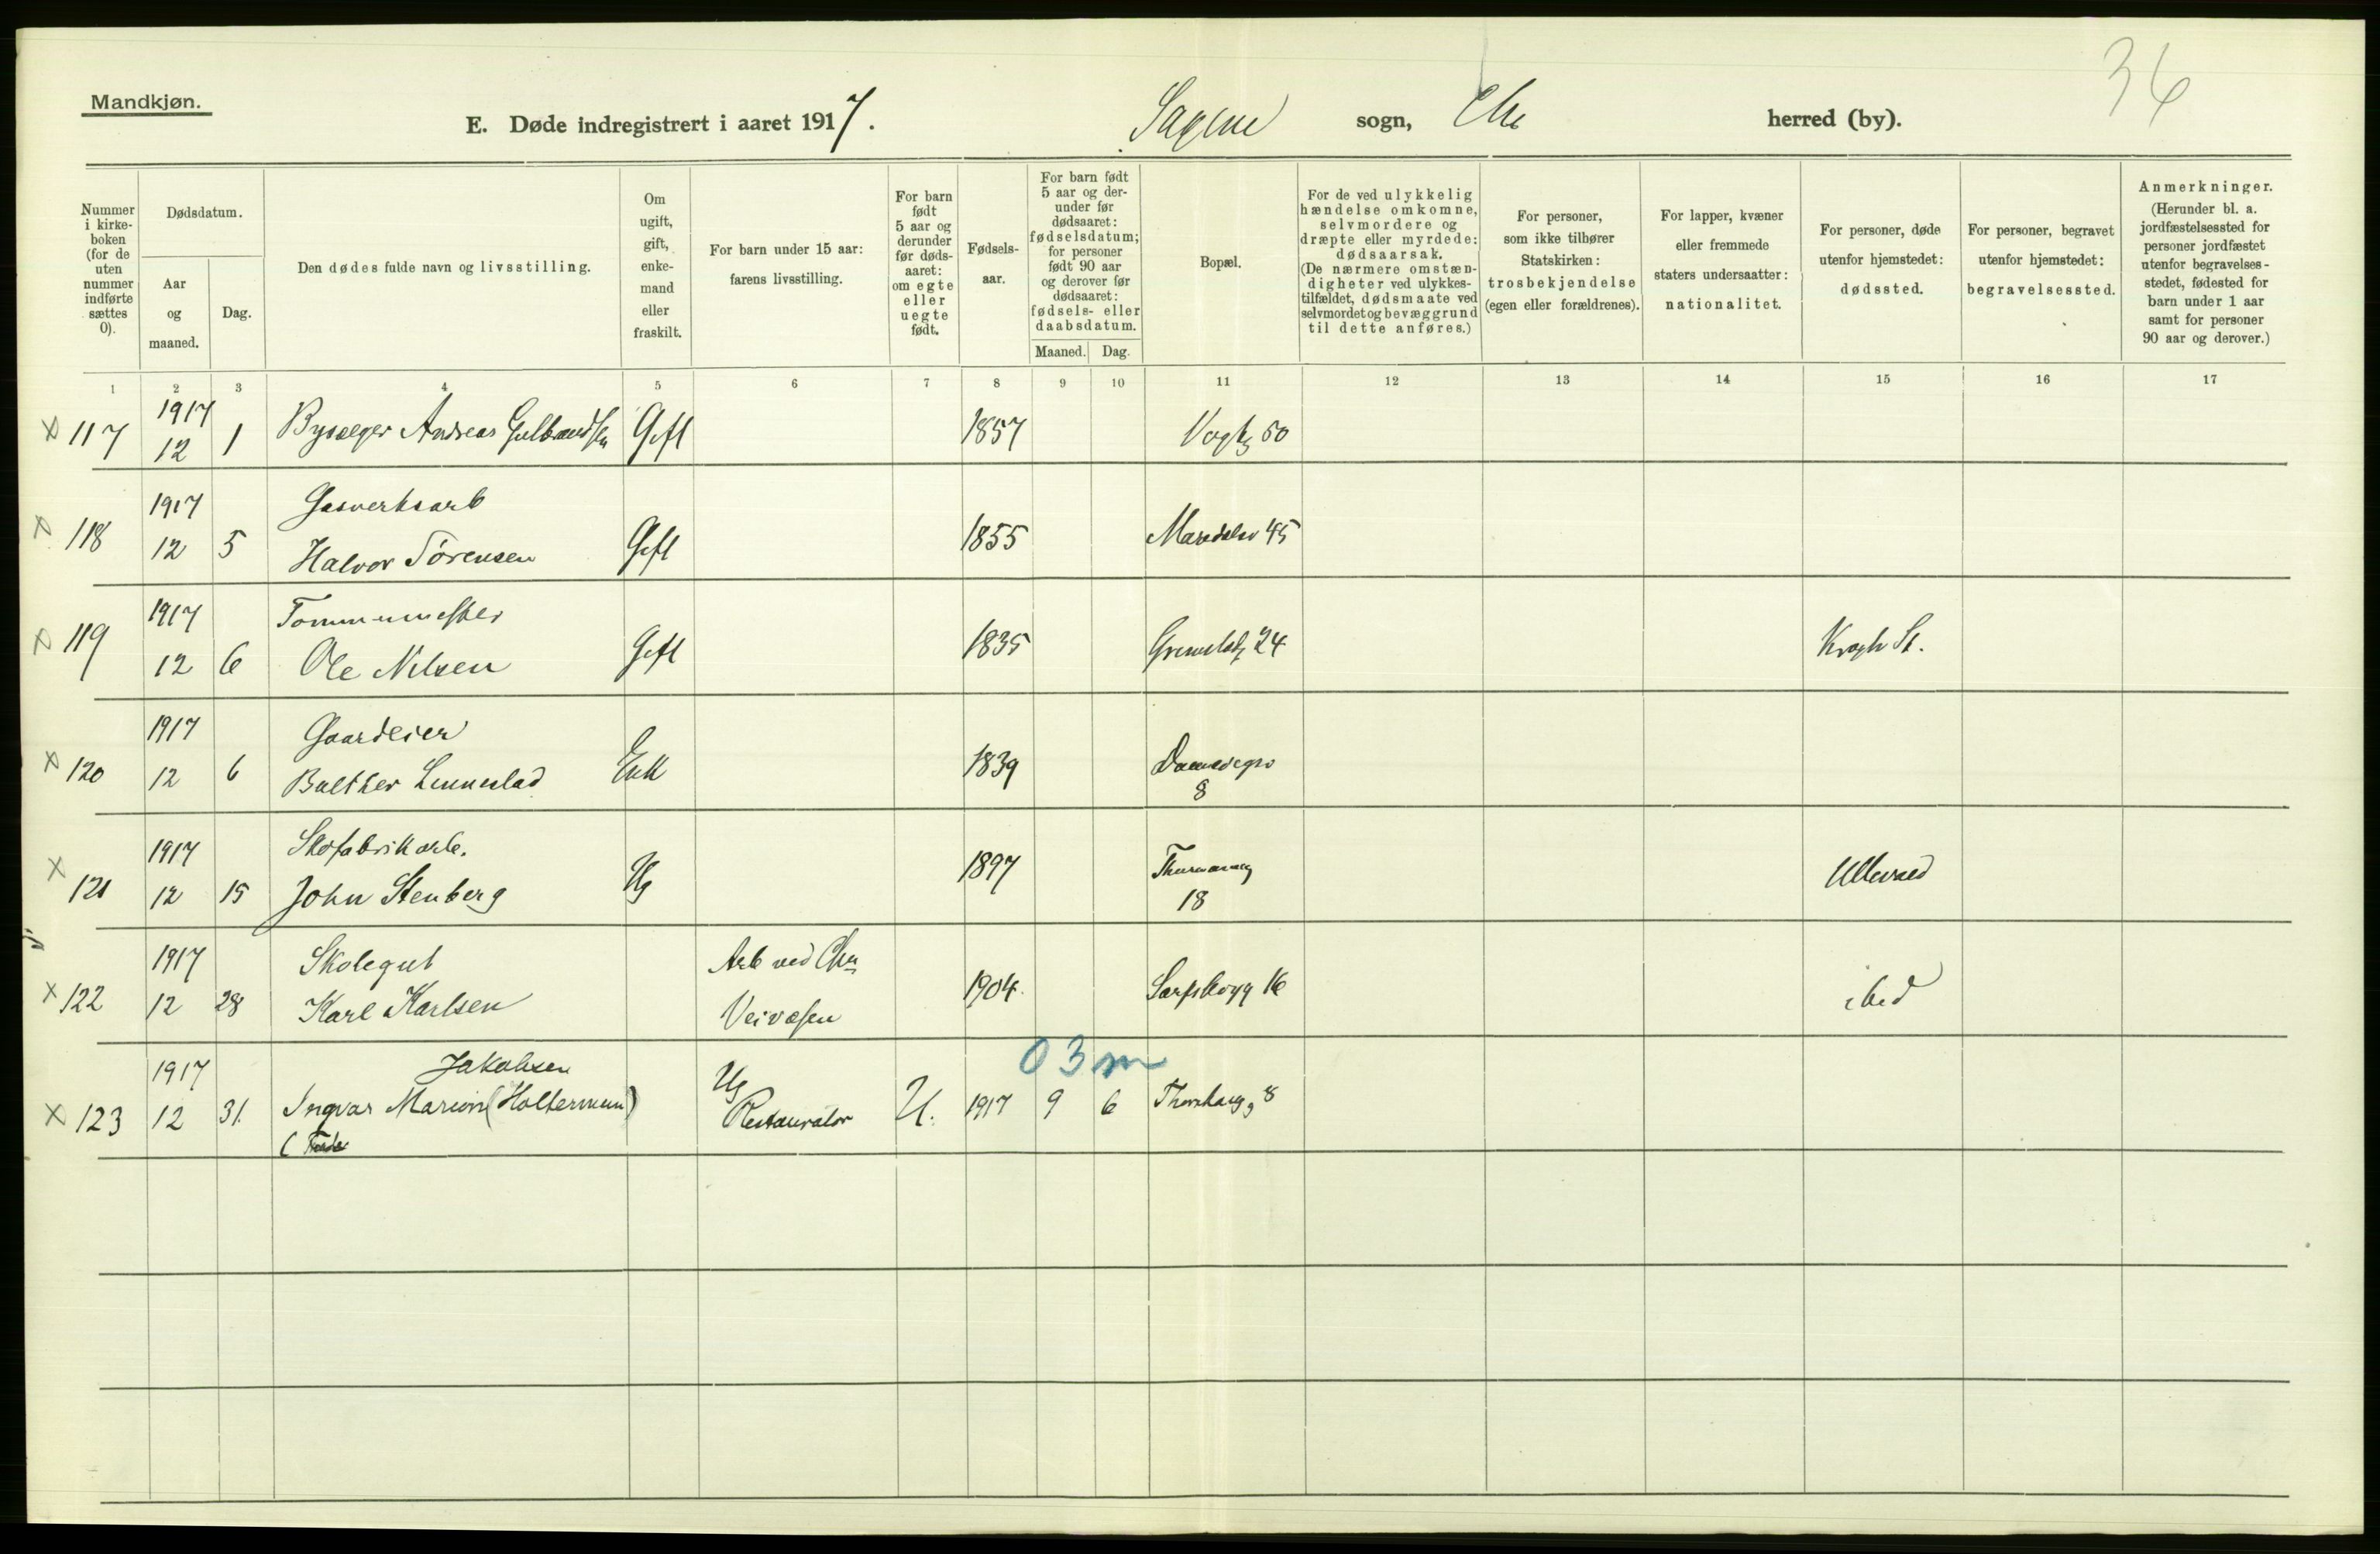 36
Mandkjøn.
E. Døde indregistrert i aaret 1917.
Sagene sogn, Chr herred (by).
Nummer i kirke-boken (for de uten nummer indførte sættes 0).
Dødsdatum.
Aar og maaned.
Dag.
Den dødes fulde navn og livsstilling.
Om ugift, gift, enke-mand eller fraskilt.
For barn under 15 aar: farens livsstilling.
For barn født 5 aar og derunder før døds-aaret: om egte eller uegte født.
Fødsels-aar.
For barn født 5 aar og der-under før dødsaaret: fødselsdatum; for personer født 90 aar og derover før dødsaaret: fødsels- eller daabsdatum.
Maaned. Dag.
Bopæl.
For de ved ulykkelig hændelse omkomne, selvmordere og dræpte eller myrdede: dødsaarsak. (De nærmere omstæn-digheter ved ulykkes-tilfældet, dødsmaate ved selvmordet og bevæggrund til dette anføres.)
For personer, som ikke tilhører Statskirken: trosbekjendelse (egen eller forældrenes).
For lapper, kvæner eller fremmede staters undersaatter: nationalitet.
For personer, døde utenfor hjemstedet: dødssted.
For personer, begravet utenfor hjemstedet: begravelsessted.
Anmerkninger. (Herunder bl. a. jordfæstelsessted for personer jordfæstet utenfor begravelses-stedet, fødested for barn under 1 aar samt for personer 90 aar og derover.)
1 2 3 4 5 6 7 8 9 10 11 12 13 14 15 16 17
1917
x 117 12 1 Andreas Gulbrandsen Gift 1857 Vogtg 50
1917 Gasverksarb
x 118 12 5 Halvor Sørensen Gift 1855 45
1917
x 119 12 6 Ole Nilsen Gift 1835 24 Krogh St.
1917 Gaardeier
x 120 12 6 Balther Enk 1839
8
1917 Skofabrikarb.
x 121 12 15 John Stenberg Ug 1897 Ullevaal
18
1917 Skolegut Arb ved Chra
x 122 12 28 Karl Karlsen Veivæsen 1904 Sarpsborgg 16 ibid
03m
1917 Jakobsen Ug
x 123 12 31. Ingvar Marion (Holtermann) Restauratør U. 1917 9 6 Thorshaugg 8